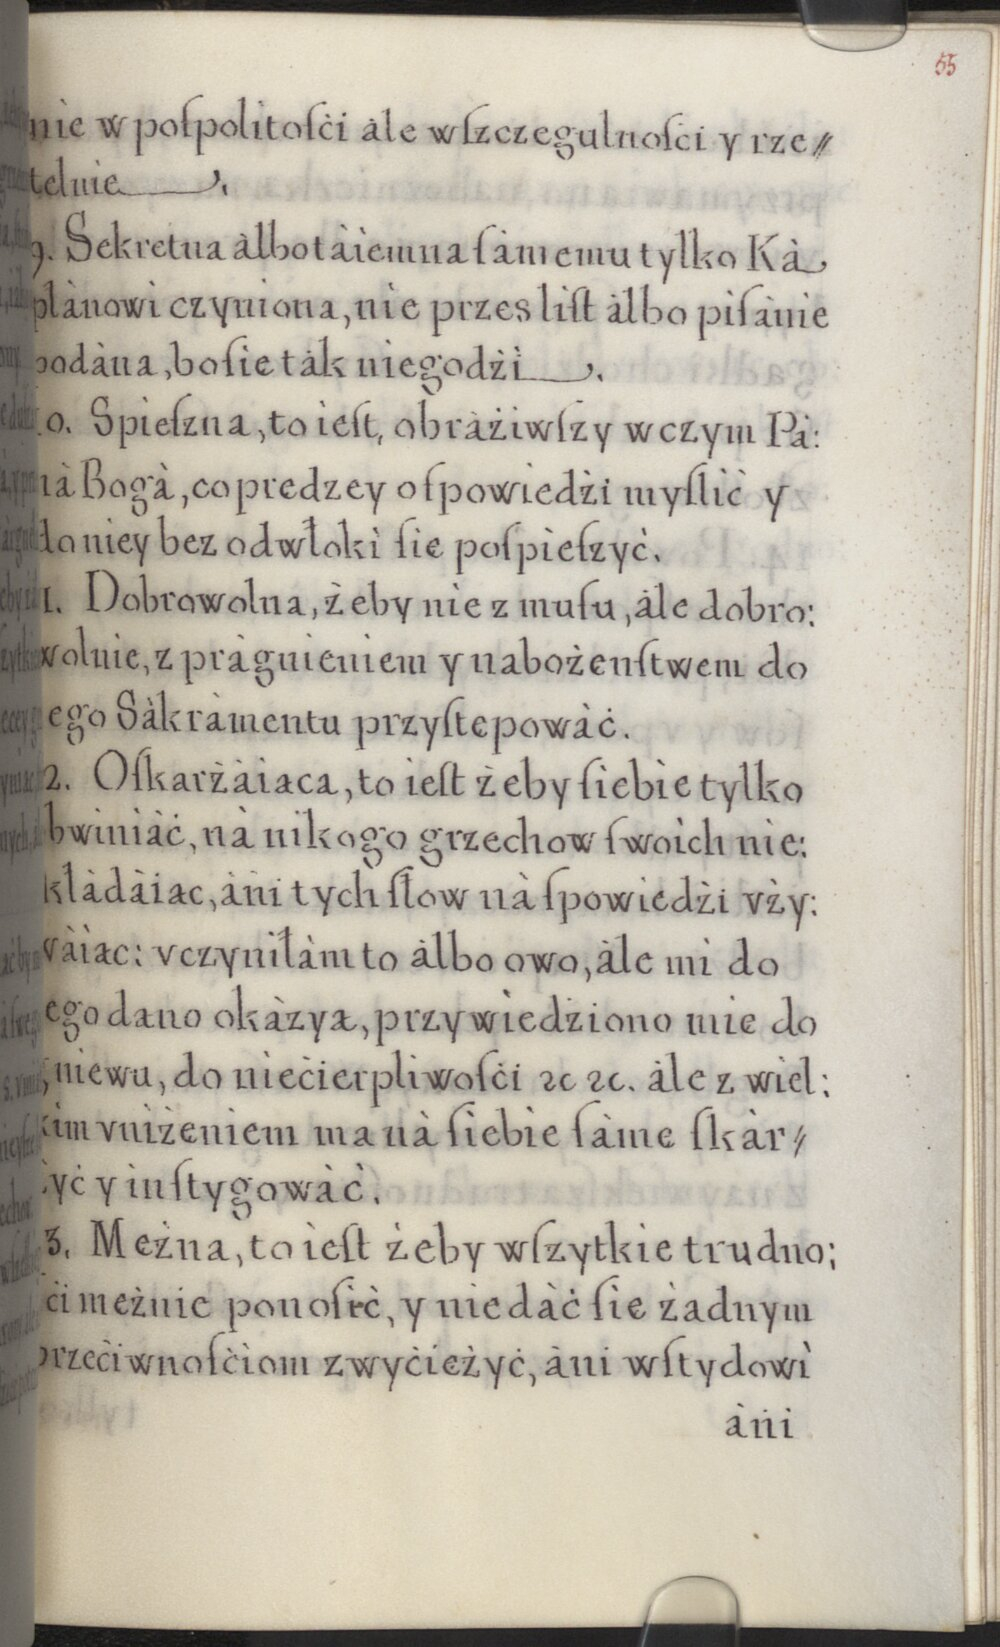 55
nie w poſpolitoſċi àle wſzczegulnoſci y rze⸗
telnie.
9. Sekretna àlbo tàiemna ſàmemu tylko Kà
plànowi czyniona, nie przes liſt àlbo piſànie
podàna, bo ſie tàk niegodżi.
0. Spieſzna, to ieſt, obràżiwſzy w czym Pà:
nà Bogà, co predzey o ſpowiedżi myſlić y
do niey bez odwłoki ſie poſpieſzyć.
1. Dobrowolna, żeby nie z muſu, àle dobro:
wolnie, z pràgnieniem y nabożenſtwem do
ego Sàkràmentu przyſtepowàċ.
2. Oſkarżàiaca, to ieſt żeby ſiebie tylko
bwiniàċ, nà nikogo grzechow ſwoich nie:
kłàdàiac, àni tych ſłow nà ſpowiedżi vży:
wàiac: vczyniłàm to àlbo owo, àle mi do
ego dano okàzya, przywiedżiono mie do
niewu, do nieċierpliwoſċi ꝛc ꝛc. àle z wiel:
kim vniżeniem ma nà ſiebie ſàme ſkàr⸗
żyċ y inſtygowàċ.
3. Meżna, to ieſt żeby wſzytkie trudno:
ċi meżnie ponoſiċ, y nie dàċ ſie żadnym
przeċiwnoſċiom zwyċieżyċ, àni wſtydowi
àni